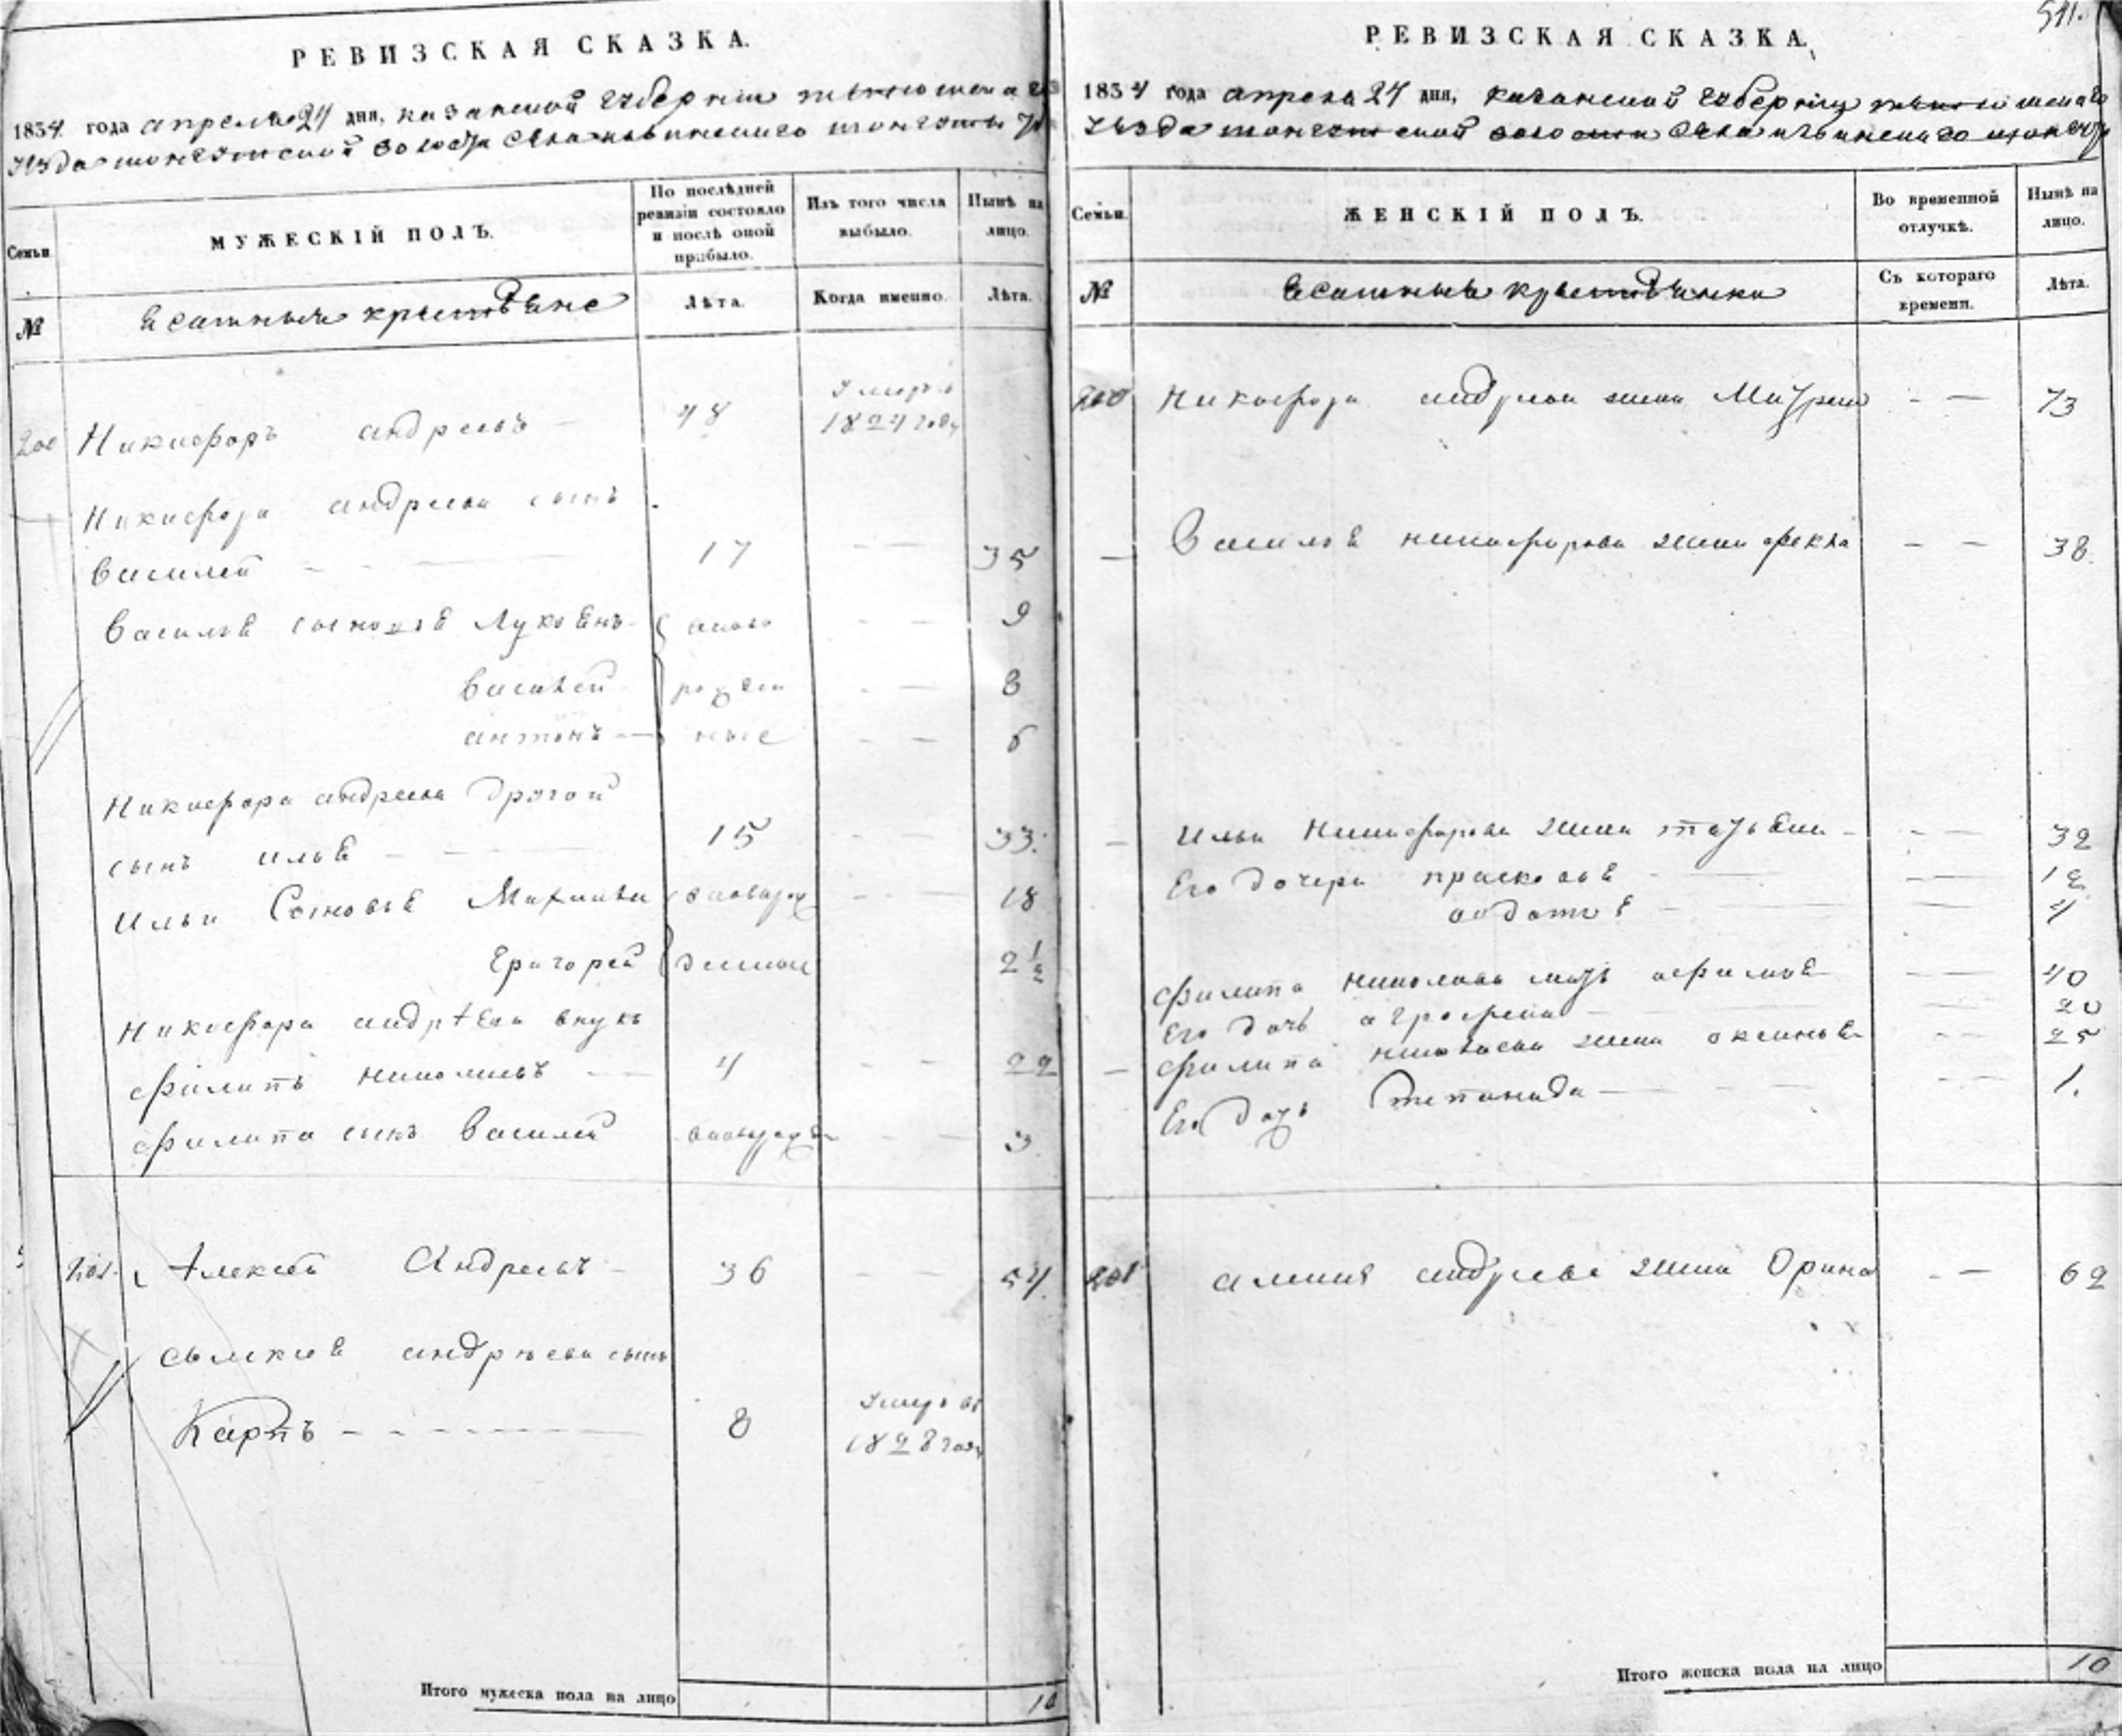 РЕВИЗСКАЯ СКАЗКА.
1834 года апреля 24 дня, казанской губернии
уезда волости
Семьи.
МУЖЕСКІЙ ПОЛЪ.
По послѣдней ревизіи состояло и послѣ оной прибыло.
Изъ того числа выбыло.
Нынѣ на лицо.
№
ясашныя крестьяне
Лѣта.
Когда именно.
Лѣта.
200 Никифоръ андреевъ 48 умеръ в 1824 году
Никифора андреева сынъ
василей 17 35
василья сыновья Лукоянъ после 9
василей рожден 8
антонъ ные 6
Никифора андреева другой
сынъ илья 15 33.
ильи Сыновья Михаила 18
григорей 2 1/2
Никифора андреева внукъ
филипъ николаевъ 4 22
филипа сынъ василей 3
201. Алексей Андреевъ 36 54.
андреева сынъ
Карпъ 8 умеръ в 1828 году
Итого мужеска пола на лицо 10
511.
РЕВИЗСКАЯ СКАЗКА.
1834 года апреля 24 дня, казанской губернии
уезда волости села
Семьи.
ЖЕНСКІЙ ПОЛЪ.
Во временной отлучкѣ.
Нынѣ на лицо.
№
ясашныя крестьянки
Съ котораго времени.
Лѣта.
200 Никифора андреева жена Матрена 73
василья никифорова жена фекла 38.
ильи Никифорова жена татьяна 32
Его дочери прасковья 12
авдотья 4
филипа николаева мать афимья 40
Его дочь аграфена 20
филипа николаева жена оксинья 25
Его дочь степанида 1.
201 андреева жена Орина 62
Итого женска пола на лицо 10